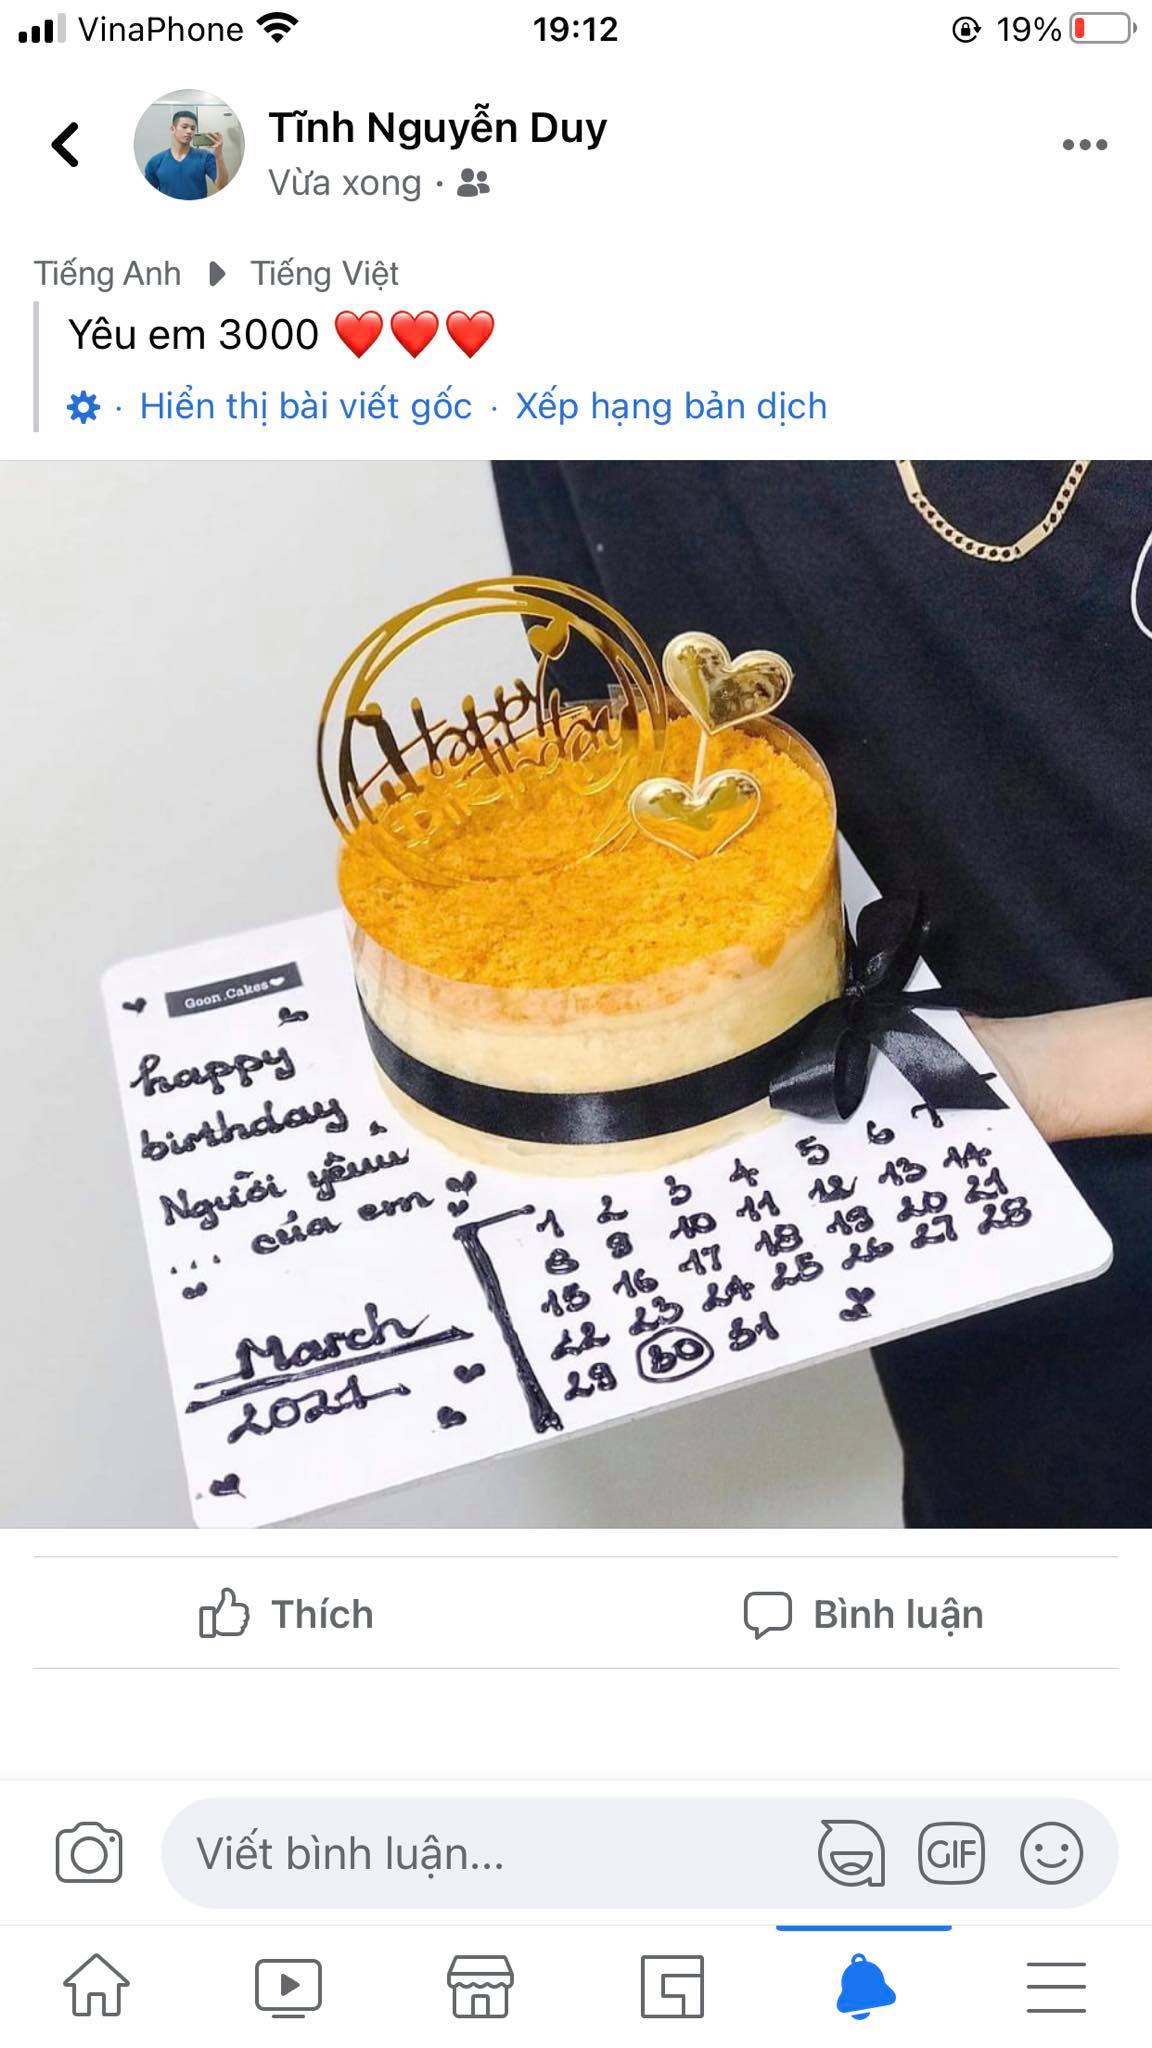 VinaPhone 19:12 19%
Tĩnh Nguyễn Duy
Vừa xong ·
Tiếng Anh Tiếng Việt
Yêu em 3000 ❤️❤️❤️
· Hiển thị bài viết gốc · Xếp hạng bản dịch
Happy
Birthday
Goon.Cakes
happy
birthday
Người yêuu
... của em
March
2021
1 2 3 4 5 6 7
8 9 10 11 12 13 14
15 16 17 18 19 20 21
22 23 24 25 26 27 28
29 30 31
Thích
Bình luận
Viết bình luận...
GIF